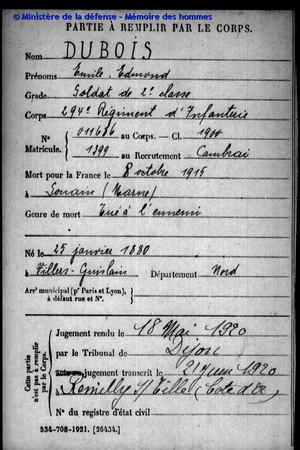 © Ministère de la défense - Mémoire des hommes
PARTIE À REMPLIR PAR LE CORPS.
Nom DUBOIS
Prénoms Emile, Edmond
Grade Soldat de 2e classe
Corps 294e Régiment d'Infanterie
N° 011686 au Corps. — Cl. 1900
Matricule. 1399 au Recrutement Cambrai
Mort pour la France le 8 octobre 1915
à Souain (Marne)
Genre de mort Tué à l'ennemi
Né le 25 janvier 1880
à Villers-Guislain Département Nord
Arrt municipal (pr Paris et Lyon),
à défaut rue et N°.
Cette partie n'est pas à remplir par le Corps.
Jugement rendu le 18 Mai 1920
par le Tribunal de Dijon
jugement transcrit le 21 juin 1920
Remilly s/ Tille (Côte d'Or)
N° du registre d'état civil
534-708-1921. [26434.]